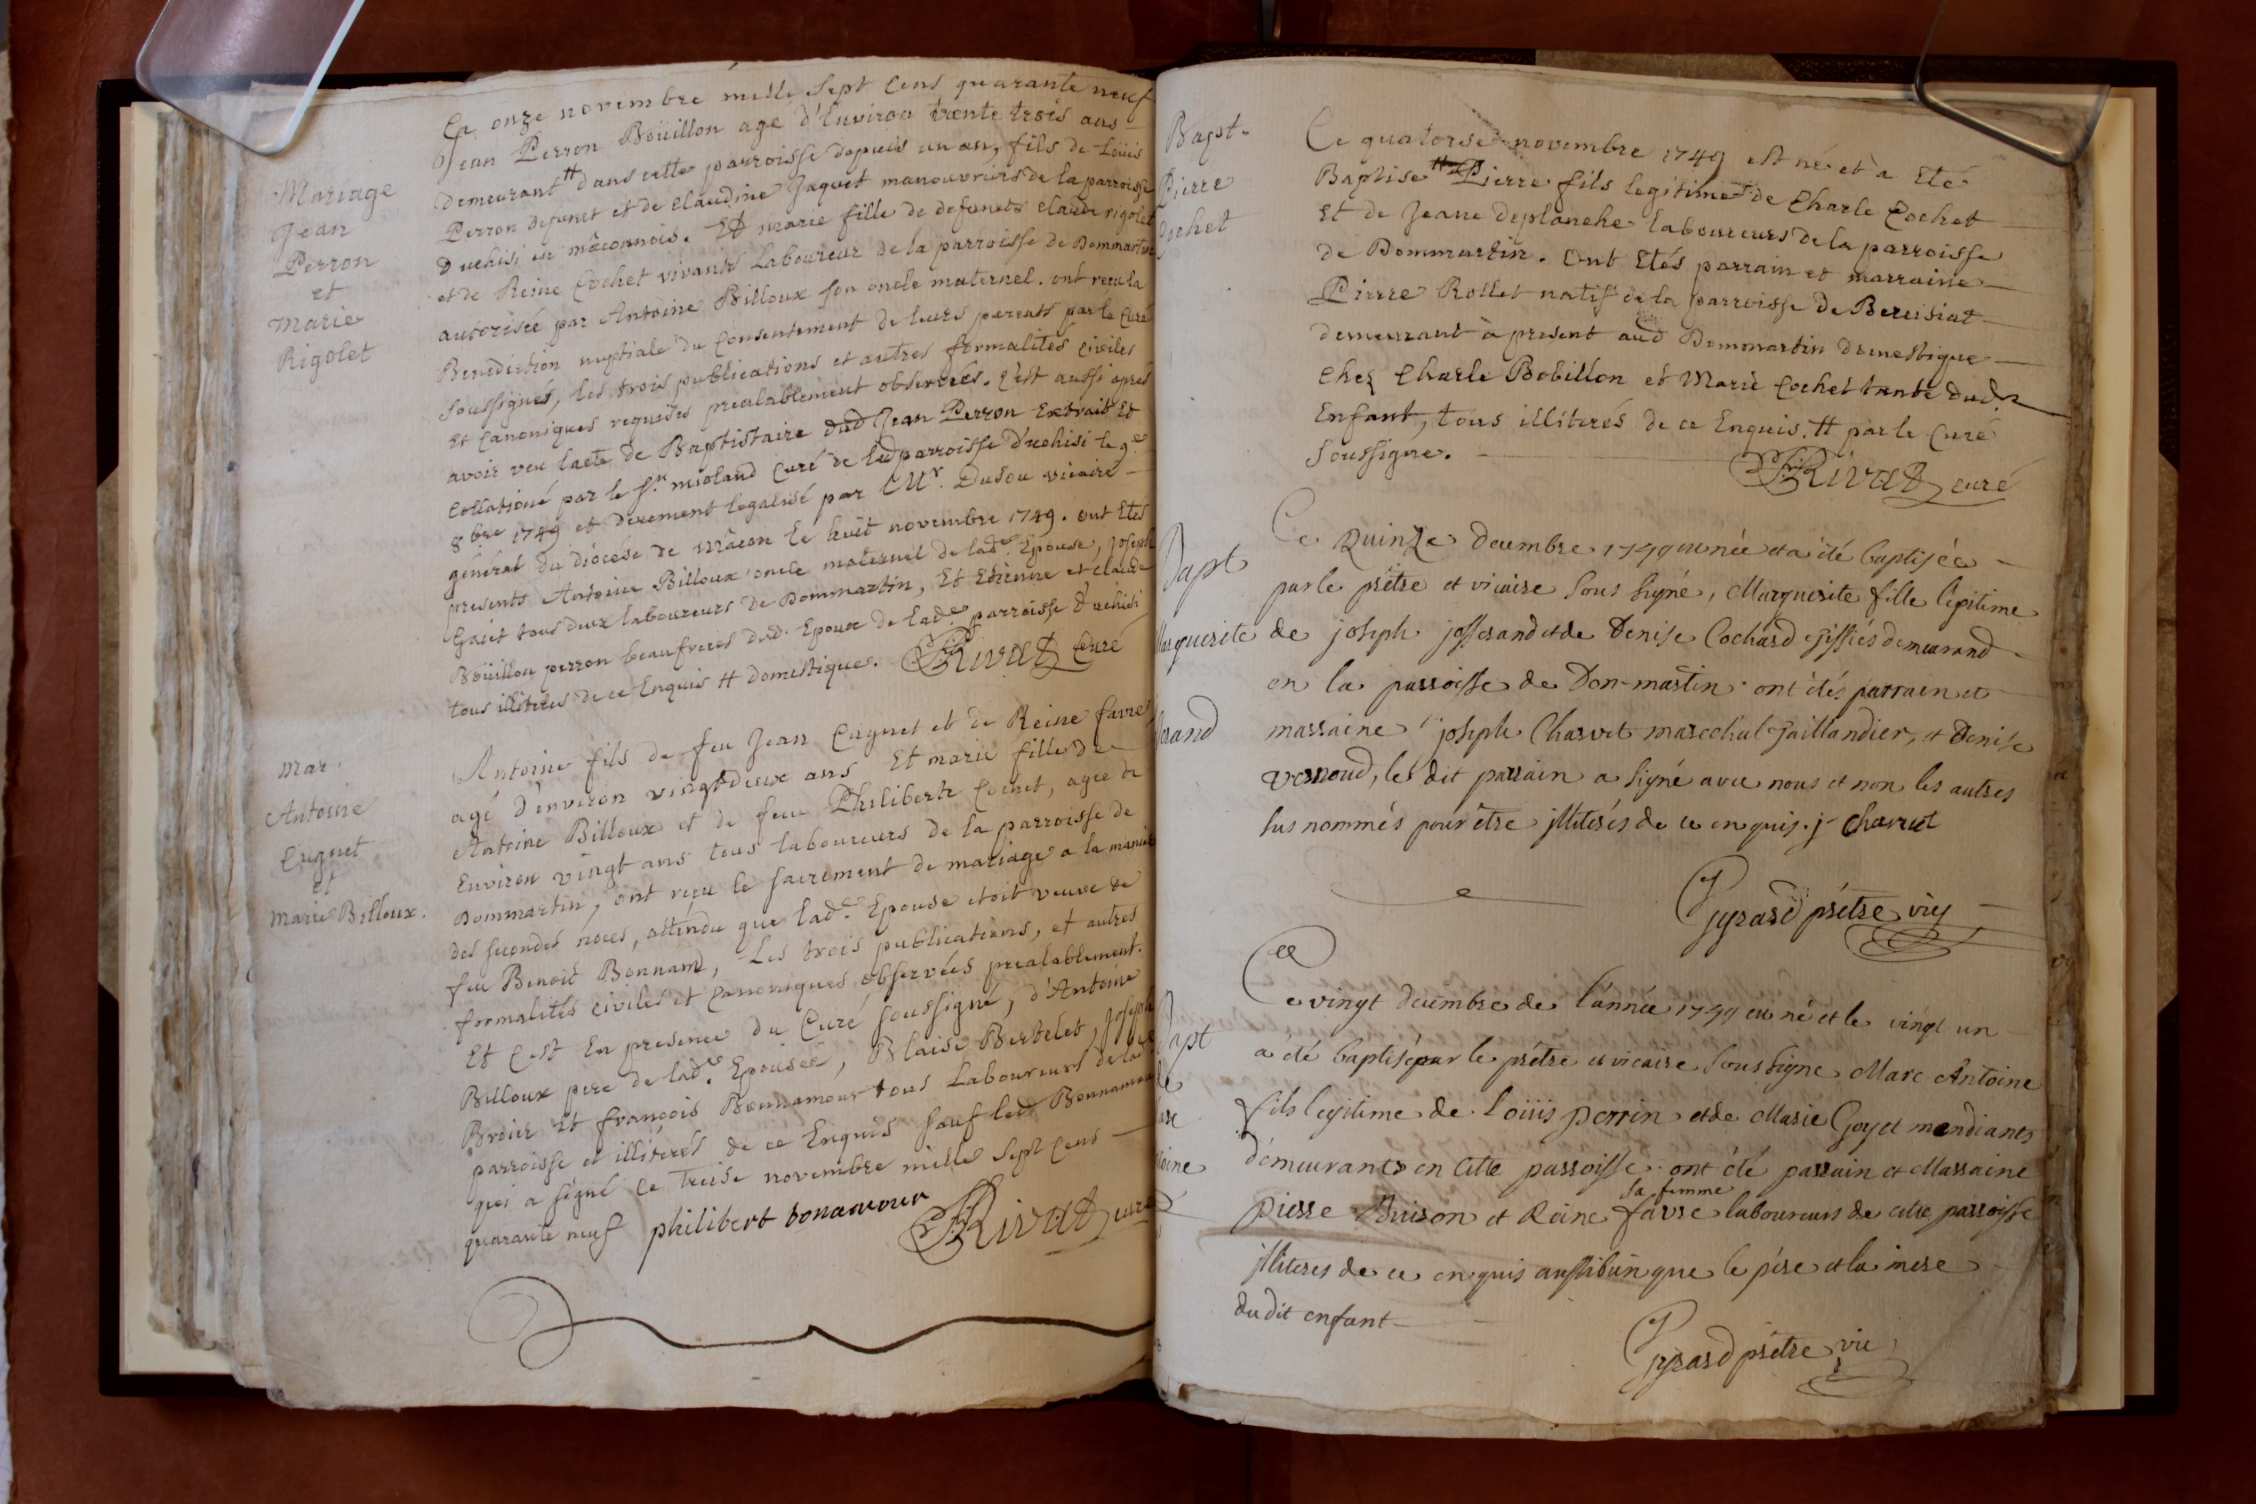 Mariage
Jean
Perron
et
Marie
Rigolet
Ce onze novembre mille sept cens quarante neuf
Jean Perron Boüillon age d'Environ trente trois ans
demeurant # dans cette parroisse depuis un an, fils de Loüis
Perron defunct et de Claudine Jaquet manouvriers de la parroisse
d'uchisi en mâconnois. Et marie fille de defuncts Claude rigolet
et de Reine Cochet vivants Laboureur de la parroisse de Dommartin
autorisée par Antoine Billoux son oncle maternel. ont reçu la
Benediction nuptiale du Consentement de leurs parents par le Curé
soussigné, les trois publications et autres formalités civiles
et Canoniques requises prealablement observées. C'est aussi apres
avoir veu lacte de Baptistaire dud Jean Perron Extrait Et
Collationé par le sr. mioland Curé de lad parroisse d'uchisi le 9e
8bre 1749 et deuement legalisé par Mr. Dusou vicaire
général du diocése de Mâcon le huit novembre 1749. ont Etés
presents Antoine Billoux oncle maternel de lade Epouse, Joseph
Gaiet tous deux laboureurs de Dommartin, Et Etienne et claude
Boüillon perron beaufreres dud. Epoux de lade parroisse d'uchisi
tous illiteres de ce Enquis # domestique. Rivat Curé
Mar.
Antoine
Cugnet
et
Marie Billoux.
Antoine fils de feu Jean Cugnet et de Reine favre
agé d'environ vingt deux ans Et marie fille de
Antoine Billoux et de feue Philiberte Cochet, agée de
Environ vingt ans tous laboureurs de la parroisse de
Dommartin, ont reçu le sacrement de mariage a la maniere
des secondes noces, attendu que lade. Epouse etoit veuve de
feu Benoit Bonnamd, Les trois publications, et autres
formalités civiles et canoniques observées prealablement.
Et C'est En presence du Curé soussigné, d'Antoine
Billoux pere de lade. Epousée, Blaise Bertelet, Joseph
Broier Et françois Bonnamour tous Laboureurs de la de
parroisse et illiterés de ce Enquis sauf led Bonnamour
qui a signé ce treise novembre mille sept cens
quarante neuf philibert bonamour Rivat curé
Bapt.
Pierre
Cochet
Ce quatorse novembre 1749 est né et à Eté
Baptise # Pierre fils legitime de Charle Cochet
Et de Jeane deplanche laboureurs de la parroisse
de Dommartin. Ont Etés parrain et marraine
Pierre Rollet natif de la parroisse de Bereisiat
demeurant à present aud Dommartin domestique
chez Charle Bobillon et Marie Cochet tante dud.
Enfant, tous illiterés de ce Enquis. # par le Curé
soussigné.
Rivat curé
Bapt
Marguerite
Ce Quinze decembre 1749 est née et a été baptisée
par le prêtre et vicaire sous signé, Marguerite fille legitime
de joseph josserand et de Denise Cochard demeurand
en la parroisse de Don-martin. ont étés parrain et
marraine joseph Charvet marechal Taillandier, et Denise
vernoud, le dit parrain a signé avec nous et non les autres
sus nommés pour être illiterés de ce enquis. j charvet
Gyrard prêtre vic
Bapt
Ce vingt decembre de l'année 1749 est né et le vingt un
a été baptisé par le prêtre et vicaire sous signé Marc Antoine
fils legitime de Loüis perrin et de Marie Goyet mendiants
démeurants en cette parroisse. ont été parrain et Marraine
pierre Buison et Reine favre sa femme laboureurs de cette parroisse
illiteres de ce enquis aussi bien que le pére et la mere
du dit enfant
Gyrard prêtre vic